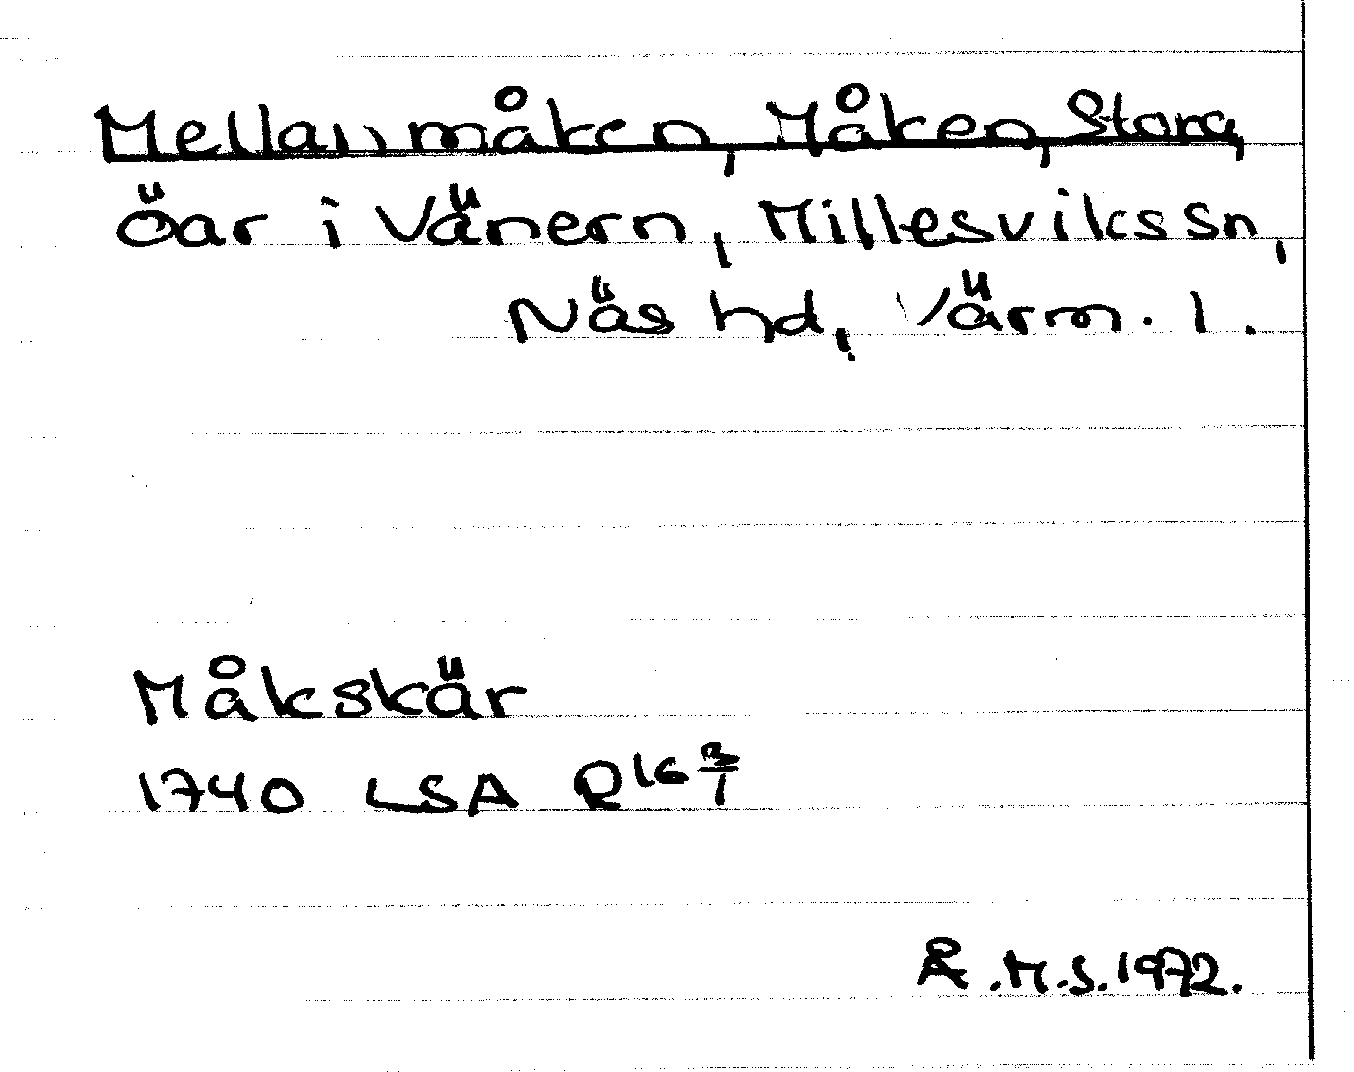 Mellanmåken, Måken, Stora,
öar i Vänern, Millesvikssn,
Näs hd, Värm. l.
Måkskär
1740 LSA R16 3/1
Å.M.S. 1972.